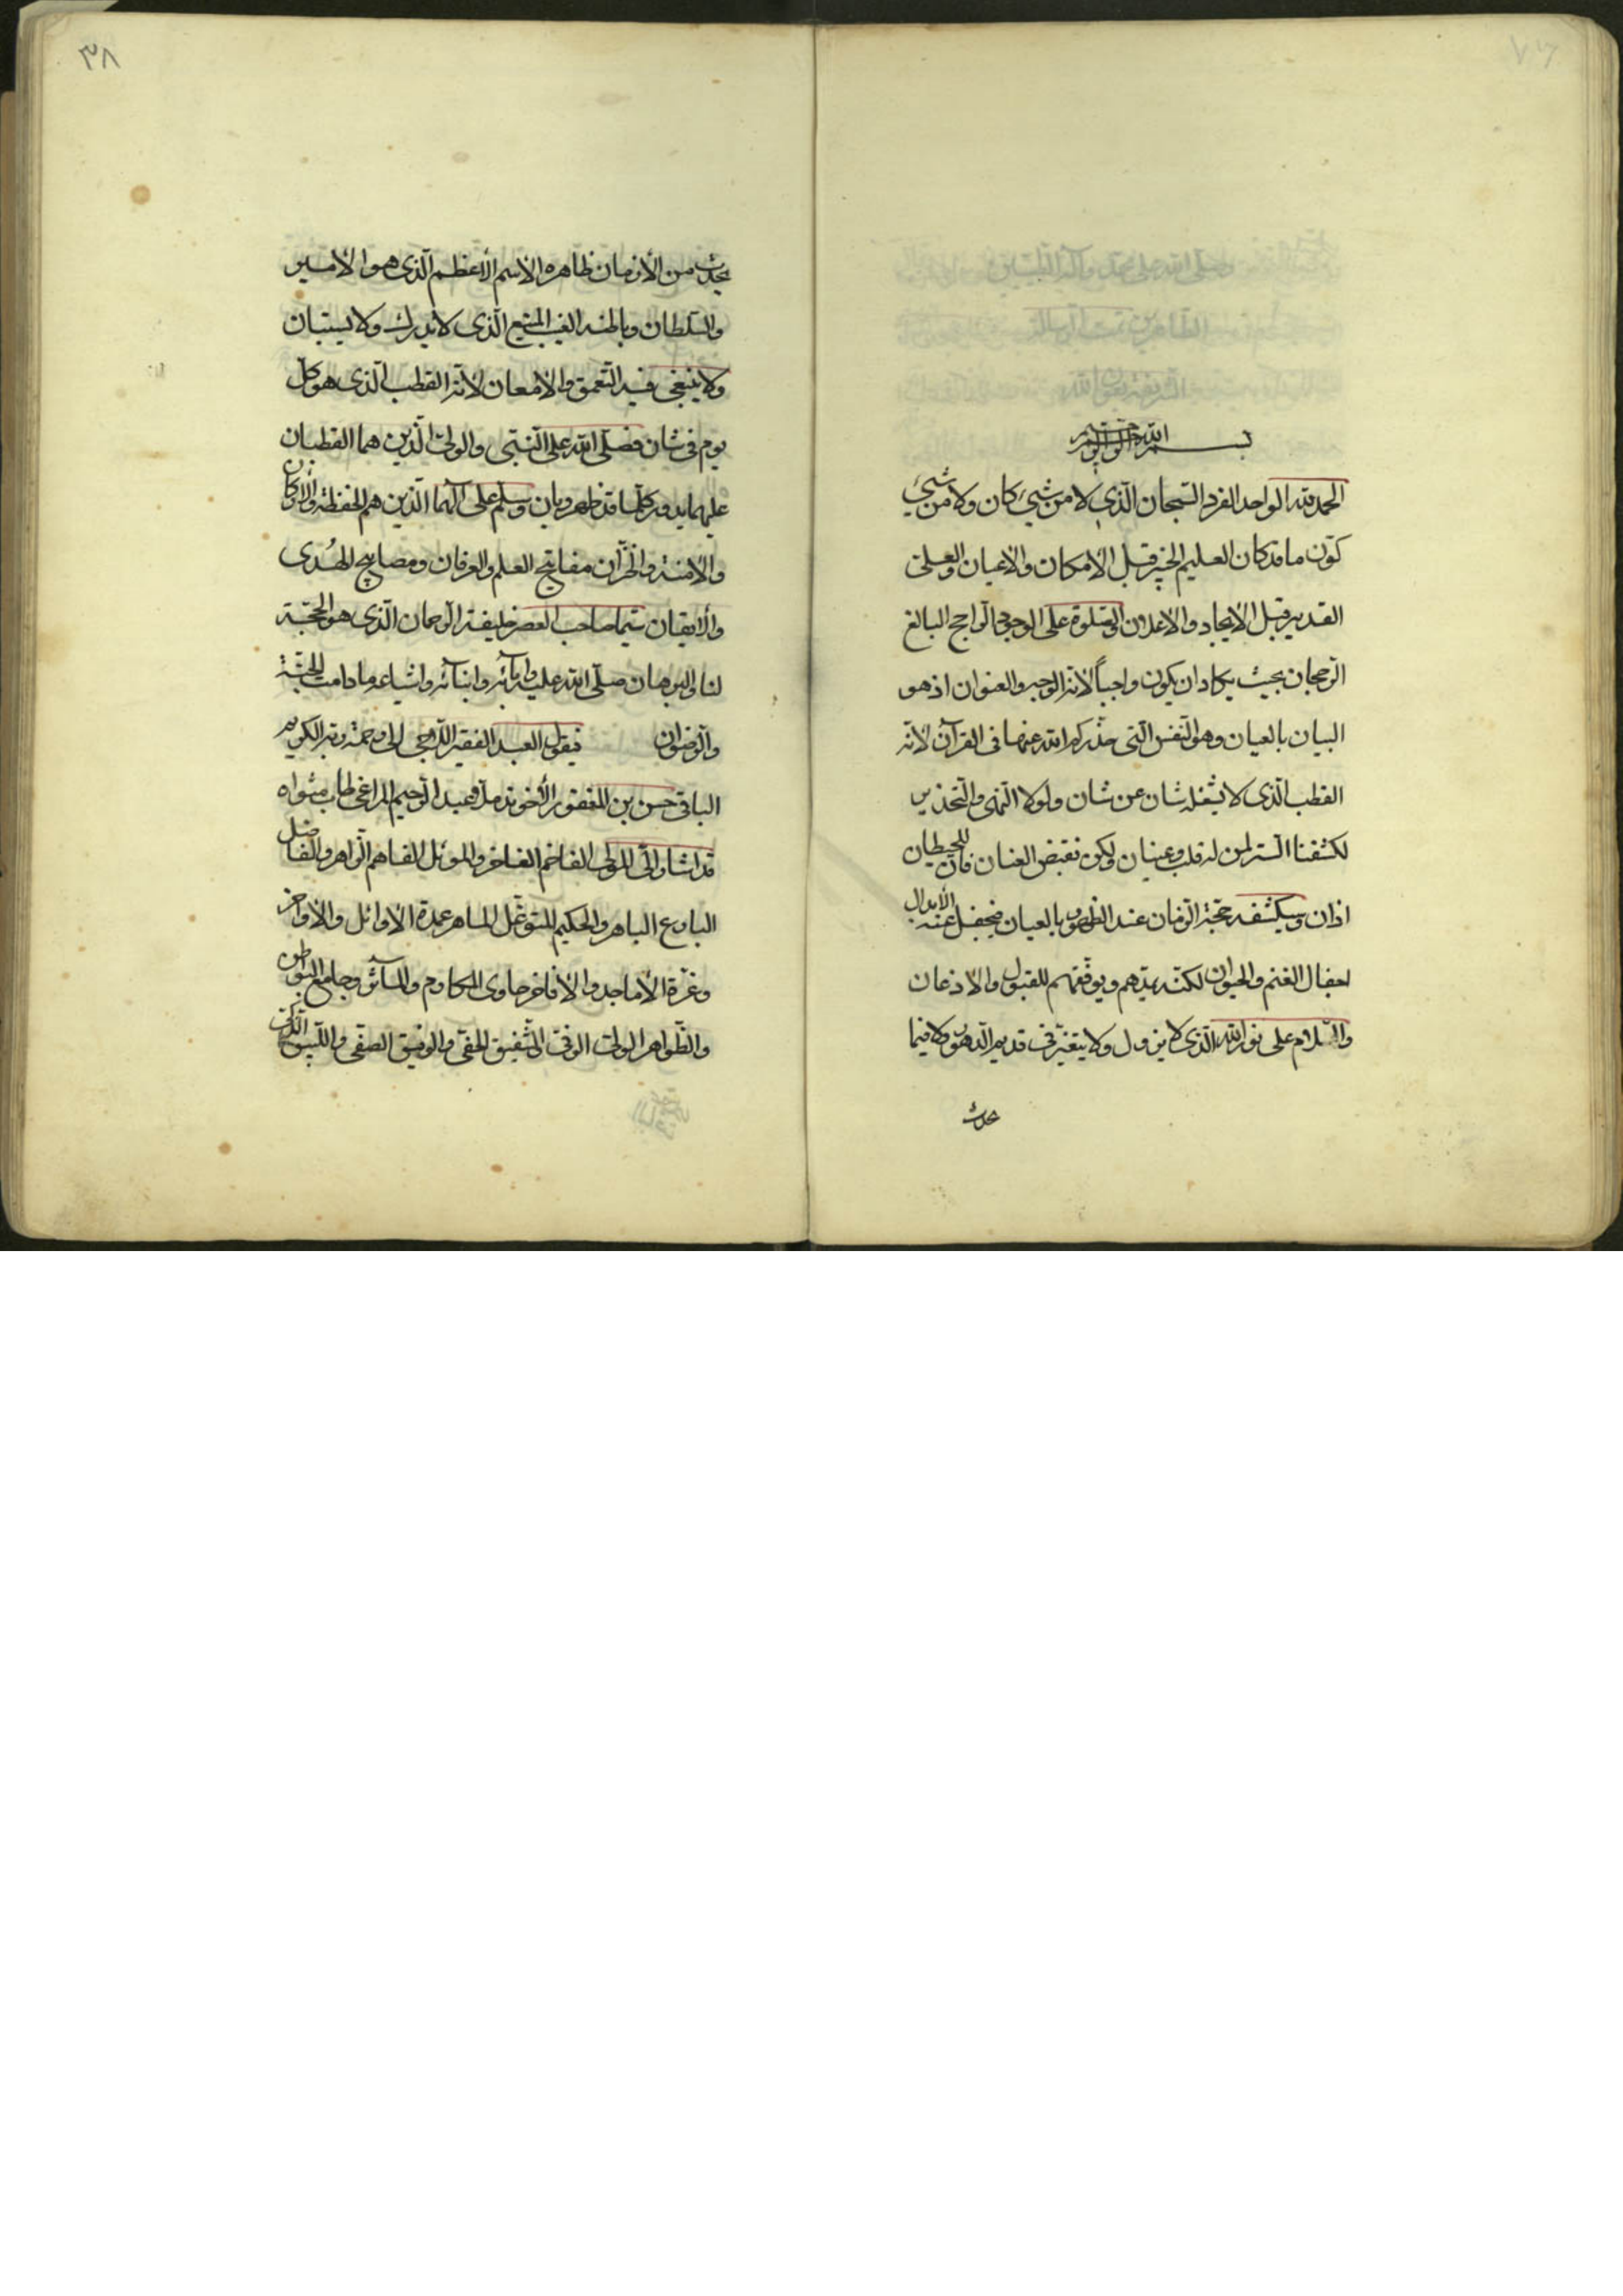 بسم الله الرحمن الرحيم
الحمد لله الواحد الفرد السبحان الذي لا من شيئ كان ولا من شيئ
كوّن ما قد كان العليم الخبير قبل الامكان والاعيان والعلىّ
القدير قبل الايجاد والاعلان والصلوة على الوجود الراجح البالغ
الرجحان بحيث يكاد ان يكون واجباً لانه الوجه والعنوان اذ هو
البيان بالعيان وهو النفس التى حذركم الله عنها فى القرآن لانه
القطب الذى لا يشغله شان عن شان ولولا النهى والتحذير
لكشفنا الستر لمن له قلب وعينان ولكن نقبض العنان فان للحيطان
اذان وسيكشفه حجة الزمان عند الظهور بالعيان فيجفل عنه الابدال
اجفال الغنم والحيوان لكنه يهديهم ويوفقهم للقبول والاذعان
والسلام على نور الله الذى لا يزول ولا يتغير فى قديم الدهور ولا فيما
يحدث
٣٨
يحدث من الأزمان ظاهره الاسم الأعظم الذى هو الامير
والسلطان وباطنه الغيب المنيع الذى لا يدرك ولا يستبان
ولا ينبغى فيه التعمق والامعان لانه القطب الذى هو كل
يوم فى شان فصلى الله على النبى والولى الذين هما القطبان
عليهما يدور كلما قد ظهر وبان وسلم على آلهما الذين هم الحفظة والاركان
والامنة والخزان مفاتيح العلم والعرفان ومصابيح الهُدى
والايقان سيما صاحب العصر خليفة الرحمان الذى هو الحجة
لنا والبرهان صلى الله عليه وابائه وابنائه واشياعه ما دامت الجنة
والرضوان فيقول العبد الفقير الراجى الى رحمة ربه الكريم
الباقى حسن بن المغفور الأخوند ملا عبد الرحيم المراغى طاب مثواه
قد اشار الىّ المولى الفاخم الفاخر والموئل الفاهم الزاهر والفاضل
البارع الباهر والحكيم المتوغل الماهر عمدة الاوائل والاواخر
وغرة الأماجد والافاخر حاوى المكارم والمآثر وجامع البواطن
والظواهر الولى الوفى الشفيق الحفى والوفيق الصفى واللبيب الذكى